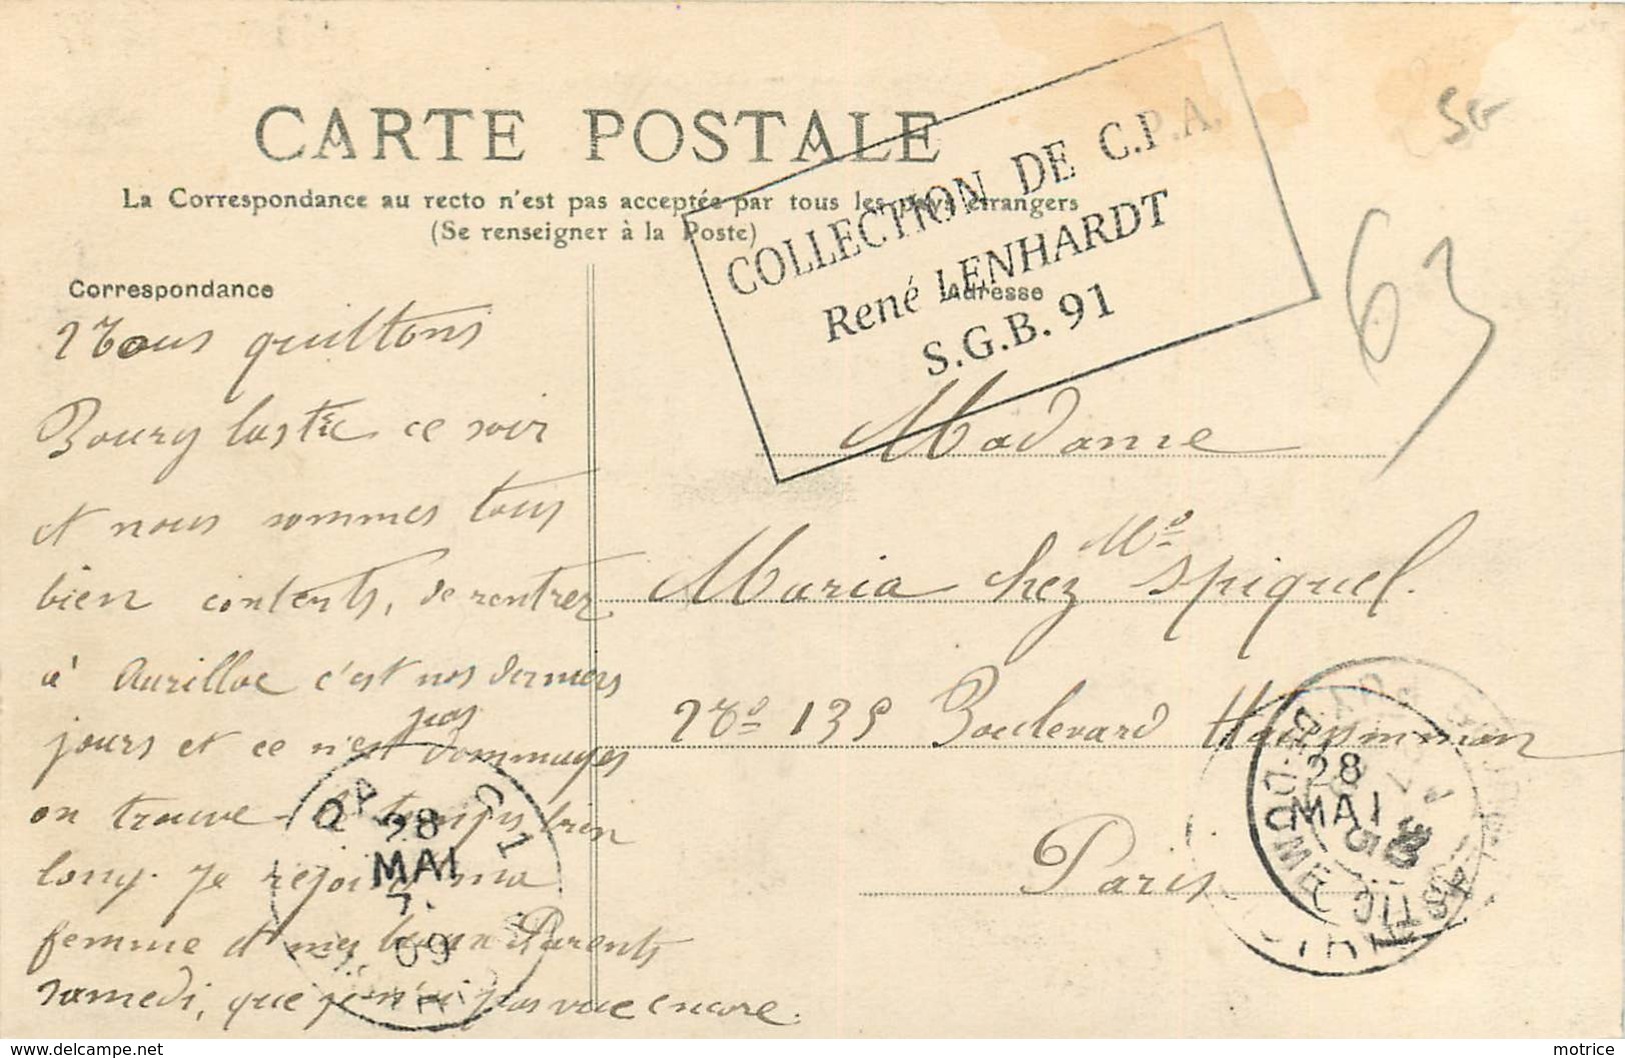 CARTE POSTALE
La Correspondance au recto n'est pas acceptée par tous les pays étrangers
(Se renseigner à la Poste)
COLLECTION DE C.P.A.
René LENHARDT
S.G.B. 91
SG
63
Correspondance
Nous quittons
Bourg lastic ce soir
et nous sommes tous
bien contents, de rentrer
à Aurillac c'est nos derniers
jours et ce n'est pas dommages
on trouve le temps bien
long. Je rejoins ma
femme et mes beaux Parents
samedi, que je n'ai pas vue encore.
Adresse
Madame
Maria chez Me Spiquel.
No 135 Boulevard Haussmann
Paris
28
MAI
09
28
MAI
PUY-DE-DOME
delcampe.net
motrice